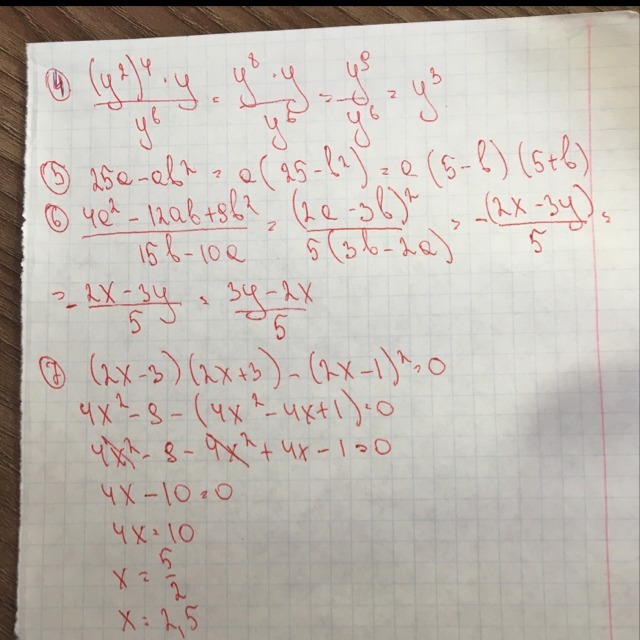 ④ (y²)⁴·y / y⁶ = y⁸·y / y⁶ = y⁹ / y⁶ = y³
⑤ 25a-ab² = a(25-b²) = a(5-b)(5+b)
⑥ 4a²-12ab+9b² / 15b-10a = (2a-3b)² / 5(3b-2a) = -(2x-3y) / 5 =
= - 2x-3y / 5 = 3y-2x / 5
⑦ (2x-3)(2x+3)-(2x-1)²=0
4x²-9-(4x²-4x+1)=0
4x²-9-4x²+4x-1=0
4x-10=0
4x=10
x = 5/2
x = 2,5